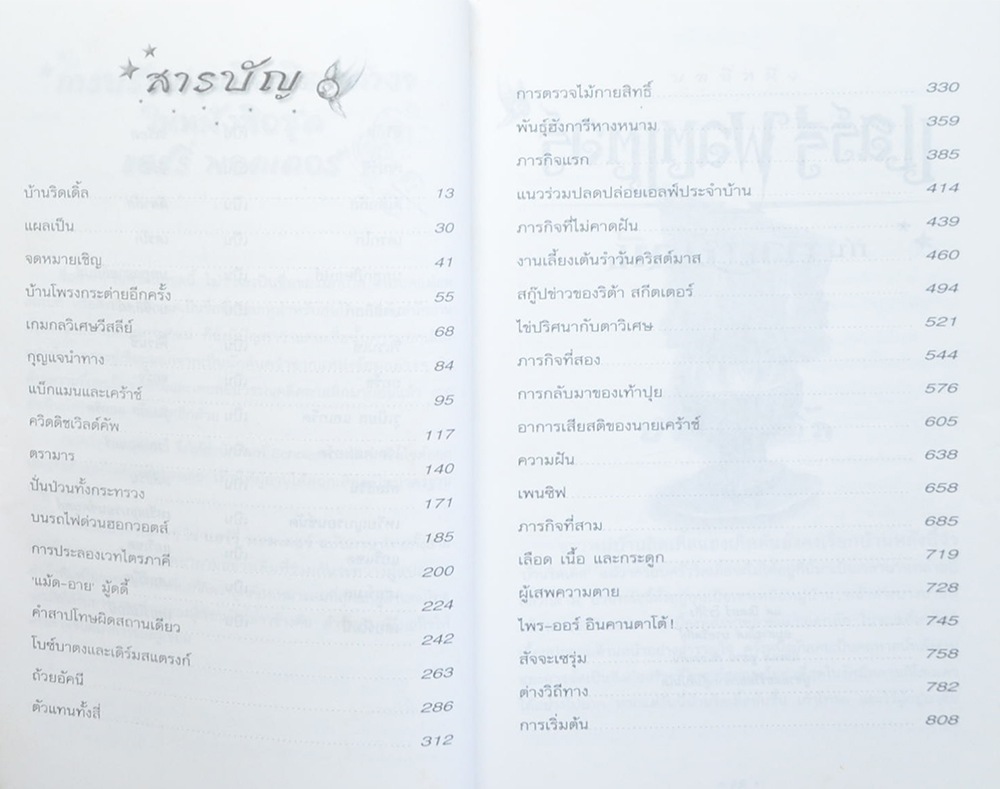 สารบัญ
บ้านริดเดิ้ล 13
แผลเป็น 30
จดหมายเชิญ 41
บ้านโพรงกระต่ายอีกครั้ง 55
เกมกลวิเศษวีสลีย์ 68
กุญแจนำทาง 84
แบ็กแมนและเคร้าช์ 95
ควิดดิชเวิลด์คัพ 117
ตรามาร 140
ปั่นป่วนทั้งกระทรวง 171
บนรถไฟด่วนฮอกวอตส์ 185
การประลองเวทไตรภาคี 200
'แม้ด-อาย' มู้ดดี้ 224
คำสาปโทษผิดสถานเดียว 242
โบซ์บาตงและเดิร์มสแตรงก์ 263
ถ้วยอัคนี 286
ตัวแทนทั้งสี่ 312
การตรวจไม้กายสิทธิ์ 330
พันธุ์ฮังการีหางหนาม 359
ภารกิจแรก 385
แนวร่วมปลดปล่อยเอลฟ์ประจำบ้าน 414
ภารกิจที่ไม่คาดฝัน 439
งานเลี้ยงเต้นรำวันคริสต์มาส 460
สกู๊ปข่าวของริต้า สกีตเตอร์ 494
ไข่ปริศนากับตาวิเศษ 521
ภารกิจที่สอง 544
การกลับมาของเท้าปุย 576
อาการเสียสติของนายเคร้าช์ 605
ความฝัน 638
เพนซิฟ 658
ภารกิจที่สาม 685
เลือด เนื้อ และกระดูก 719
ผู้เสพความตาย 728
ไพร-ออร์ อินคานตาโต้! 745
สัจจะเซรุ่ม 758
ต่างวิถีทาง 782
การเริ่มต้น 808